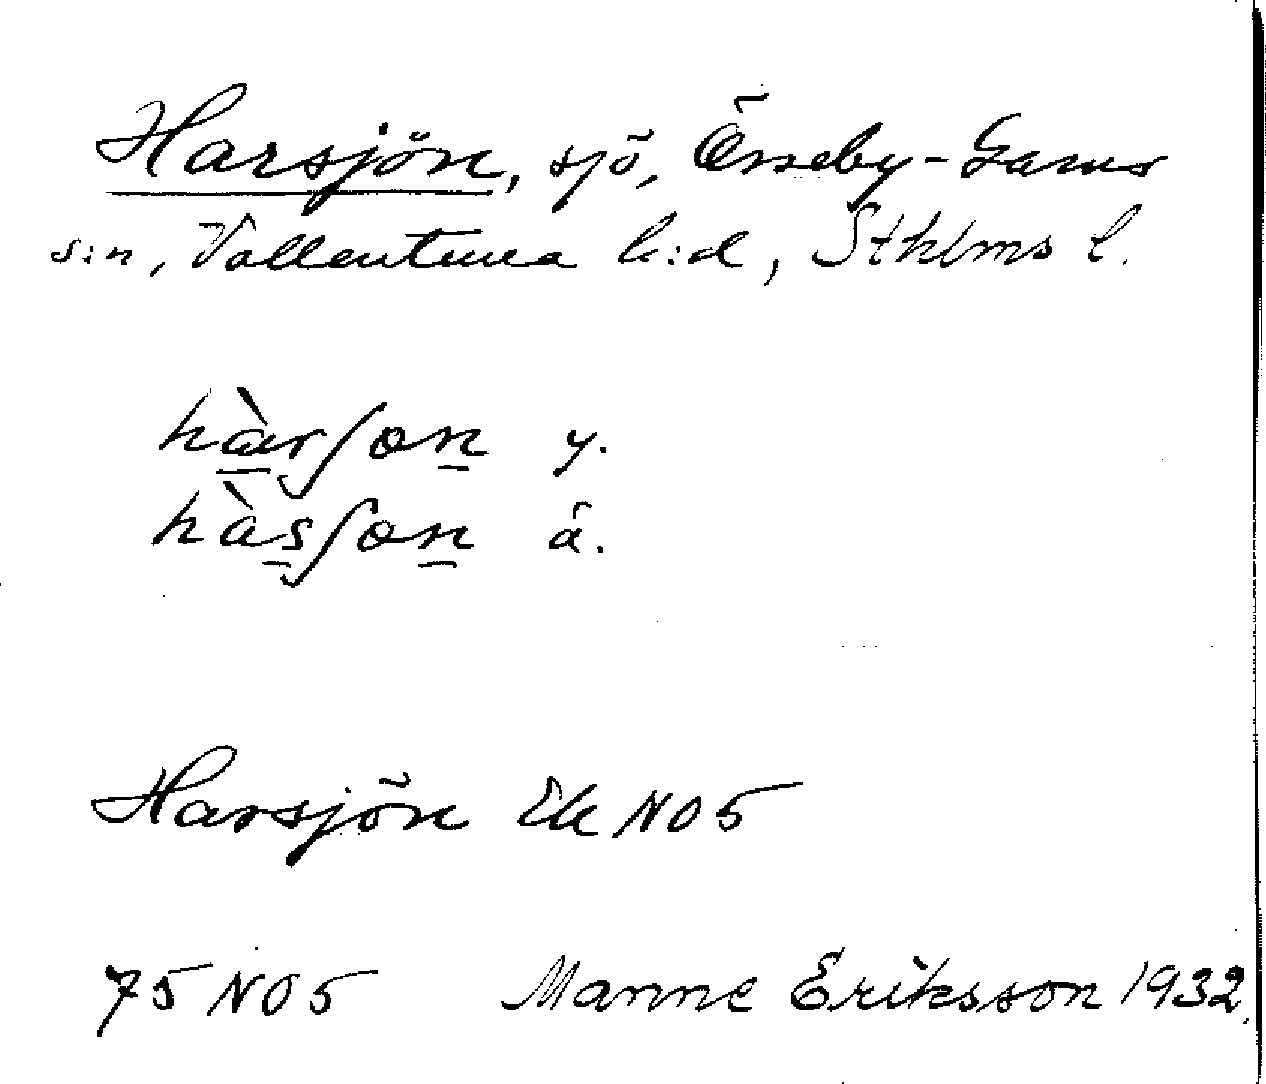 Harsjön, sjö, Össeby-Garns
s:n, Vallentuna h:d, Sthlms l.
hàrʃøn y.
hàsʃøn ä.
Harsjön Ek NO5
75 NO5 Manne Eriksson 1932.